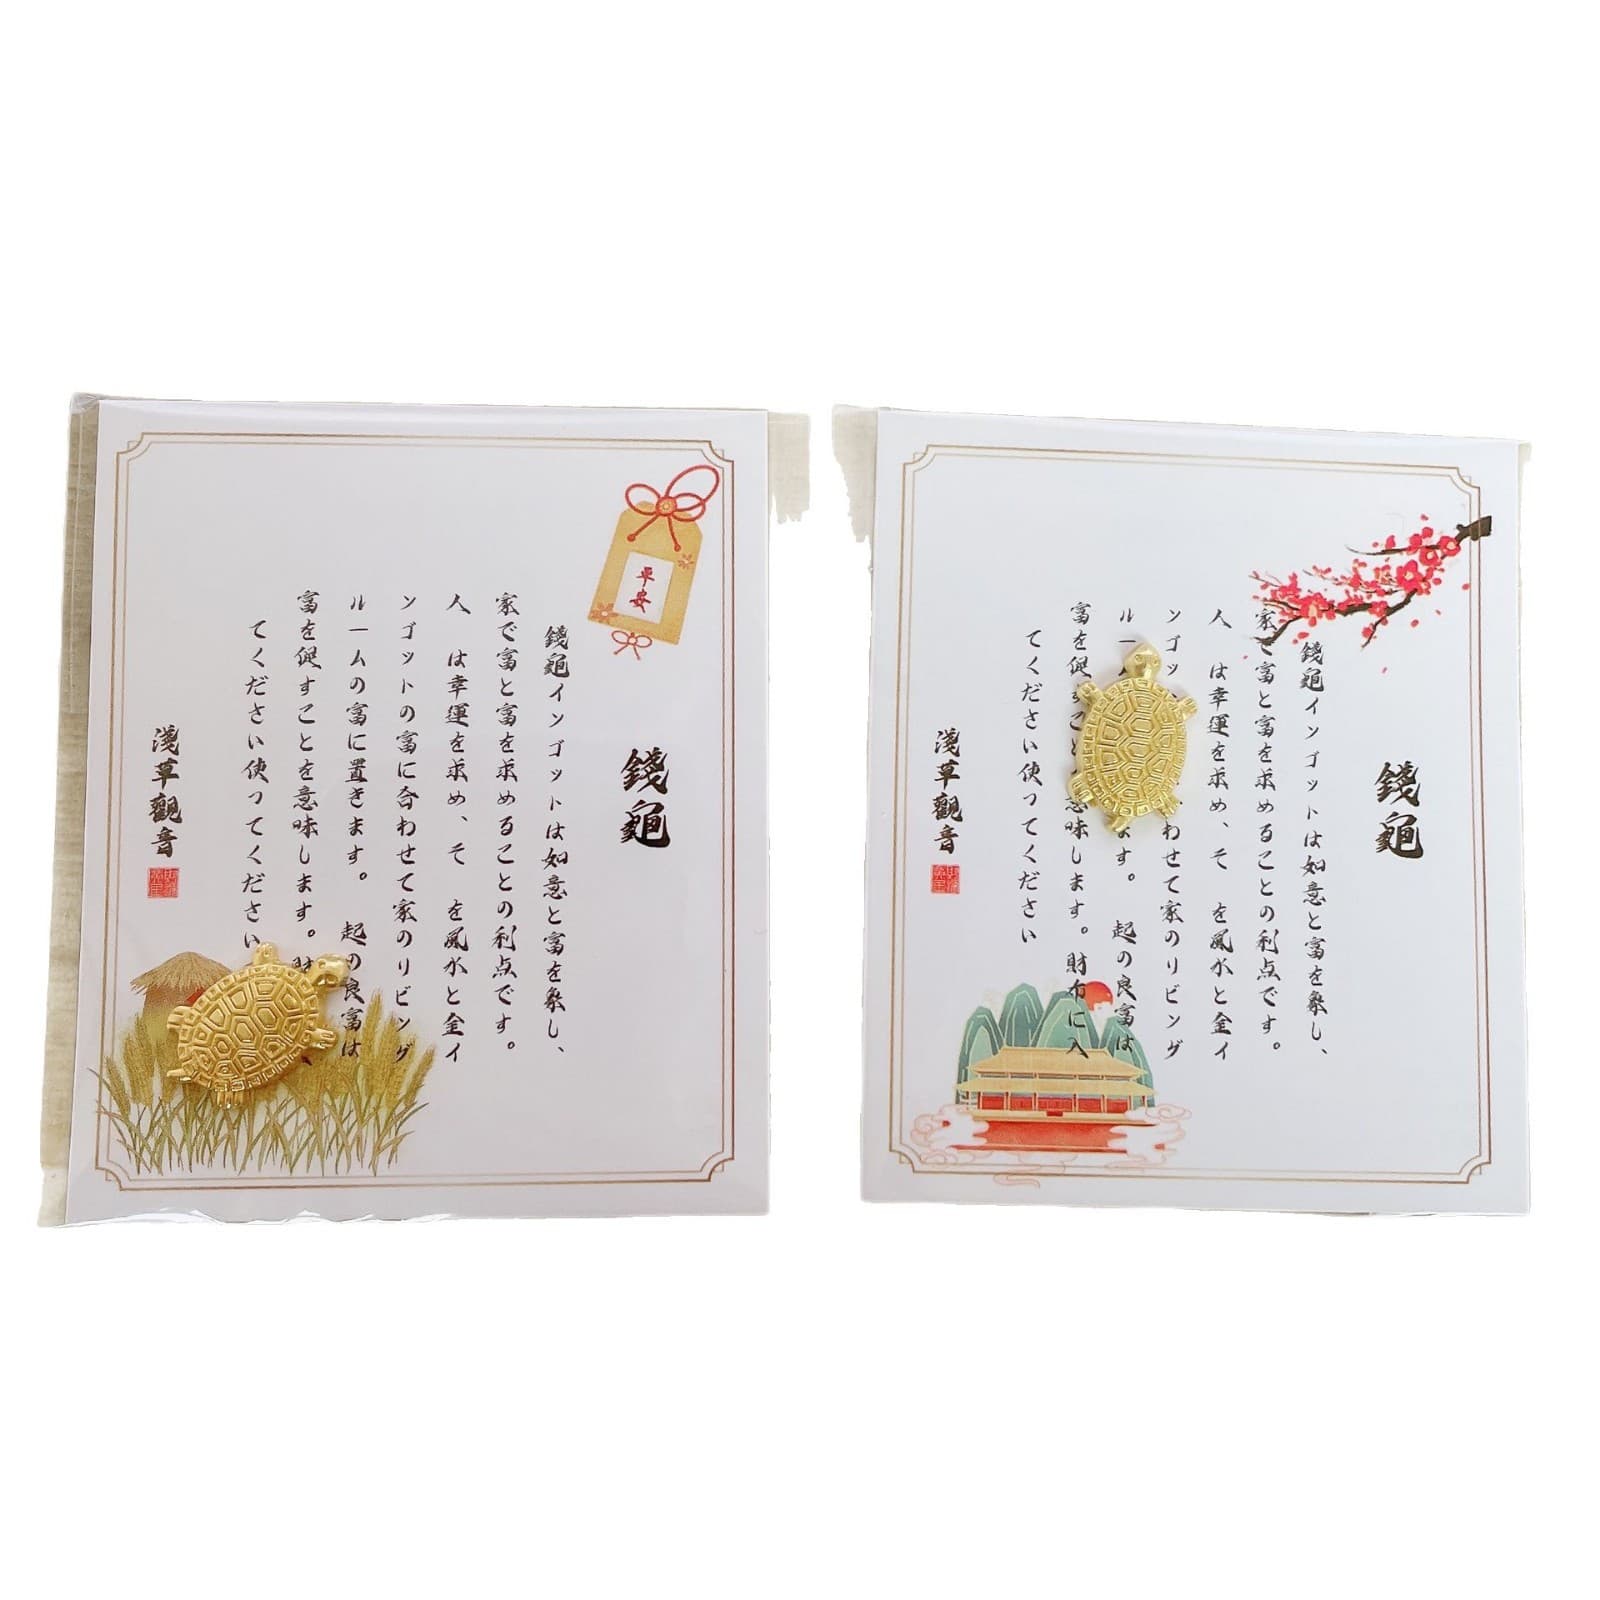 平安
錢龜
錢龜インゴットは如意と富を象し、
家で富と富を求めることの利点です。
人　は幸運を求め、そ　を風水と金イ
ンゴットの富に合わせて家のリビング
ルームの富に置きます。　起の良富は
富を促すことを意味します。財
てください使ってください
淺草觀音
錢龜
錢龜インゴットは如意と富を象し、
家で富と富を求めることの利点です。
人　は幸運を求め、そ　を風水と金イ
ンゴッ　わせて家のリビング
ルー　ます。　起の良富は
富を促すこと　意味します。財布に入
てください使ってください
淺草觀音